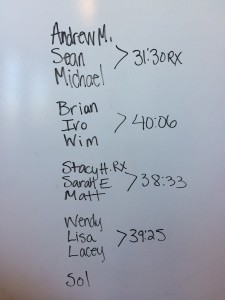 Andrew M.
Sean > 31:30 RX
Michael
Brian
Ivo > 40:06
Wim
Stacy H. RX
Sarah E > 38:33
Matt
Wendy
Lisa > 39:25
Lacey
Sol